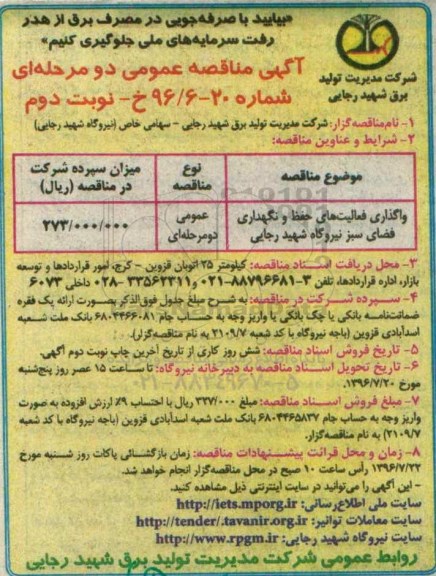 «بیایید با صرفه‌جویی در مصرف برق از هدر
رفت سرمایه‌های ملی جلوگیری کنیم»
شرکت مدیریت تولید
برق شهید رجایی
آگهی مناقصه عمومی دو مرحله‌ای
شماره ۲۰-۹۶/۶ خ- نوبت دوم
۱- نام‌مناقصه‌گزار: شرکت مدیریت تولید برق شهید رجایی - سهامی خاص (نیروگاه شهید رجایی)
۲- شرایط و عناوین مناقصه:
موضوع مناقصه
نوع مناقصه
میزان سپرده شرکت در مناقصه (ریال)
واگذاری فعالیت‌های حفظ و نگهداری
فضای سبز نیروگاه شهید رجایی
عمومی
دومرحله‌ای
۲۷۳/۰۰۰/۰۰۰
۳- محل دریافت اسناد مناقصه: کیلومتر ۲۵ اتوبان قزوین - کرج، امور قراردادها و توسعه
بازار، اداره قراردادها، تلفن ۳-۸۸۷۹۶۶۸۱-۰۲۱ و ۳۳۵۶۲۳۱۱-۰۲۸ داخلی ۶۰۷۳
۴- سپرده شرکت در مناقصه: به شرح مبلغ جدول فوق‌الذکر بصورت ارائه یک فقره
ضمانتنامه بانکی یا چک بانکی یا واریز وجه به حساب جام ۶۸۰۴۴۶۶۰۸۱ بانک ملت شعبه
اسدآبادی قزوین (باجه نیروگاه با کد شعبه ۲۱۰۹/۷ به نام مناقصه‌گزار).
۵- تاریخ فروش اسناد مناقصه: شش روز کاری از تاریخ آخرین چاپ نوبت دوم آگهی.
۶- تاریخ تحویل اسناد مناقصه به دبیرخانه نیروگاه: تا ساعت ۱۵ عصر روز پنج‌شنبه
مورخ ۱۳۹۶/۷/۲۰.
۷- مبلغ فروش اسناد مناقصه: مبلغ ۳۲۷/۰۰۰ ریال با احتساب ۹٪ ارزش افزوده به صورت
واریز وجه به حساب جام ۶۸۰۴۴۶۵۸۳۷ بانک ملت شعبه اسدآبادی قزوین (باجه نیروگاه با کد شعبه
۲۱۰۹/۷) به نام مناقصه‌گزار.
۸- زمان و محل قرائت پیشنهادات مناقصه: زمان بازگشائی پاکات روز شنبه مورخ
۱۳۹۶/۷/۲۲ رأس ساعت ۱۰ صبح در محل مناقصه‌گزار انجام خواهد شد.
- این آگهی را می‌توانید در سایت اینترنتی ذیل مشاهده کنید.
سایت ملی اطلاع‌رسانی: http://iets.mporg.ir
سایت معاملات توانیر: http://tender/.tavanir.org.ir
سایت نیروگاه شهید رجایی: http://www.rpgm.ir
روابط عمومی شرکت مدیریت تولید برق شهید رجایی